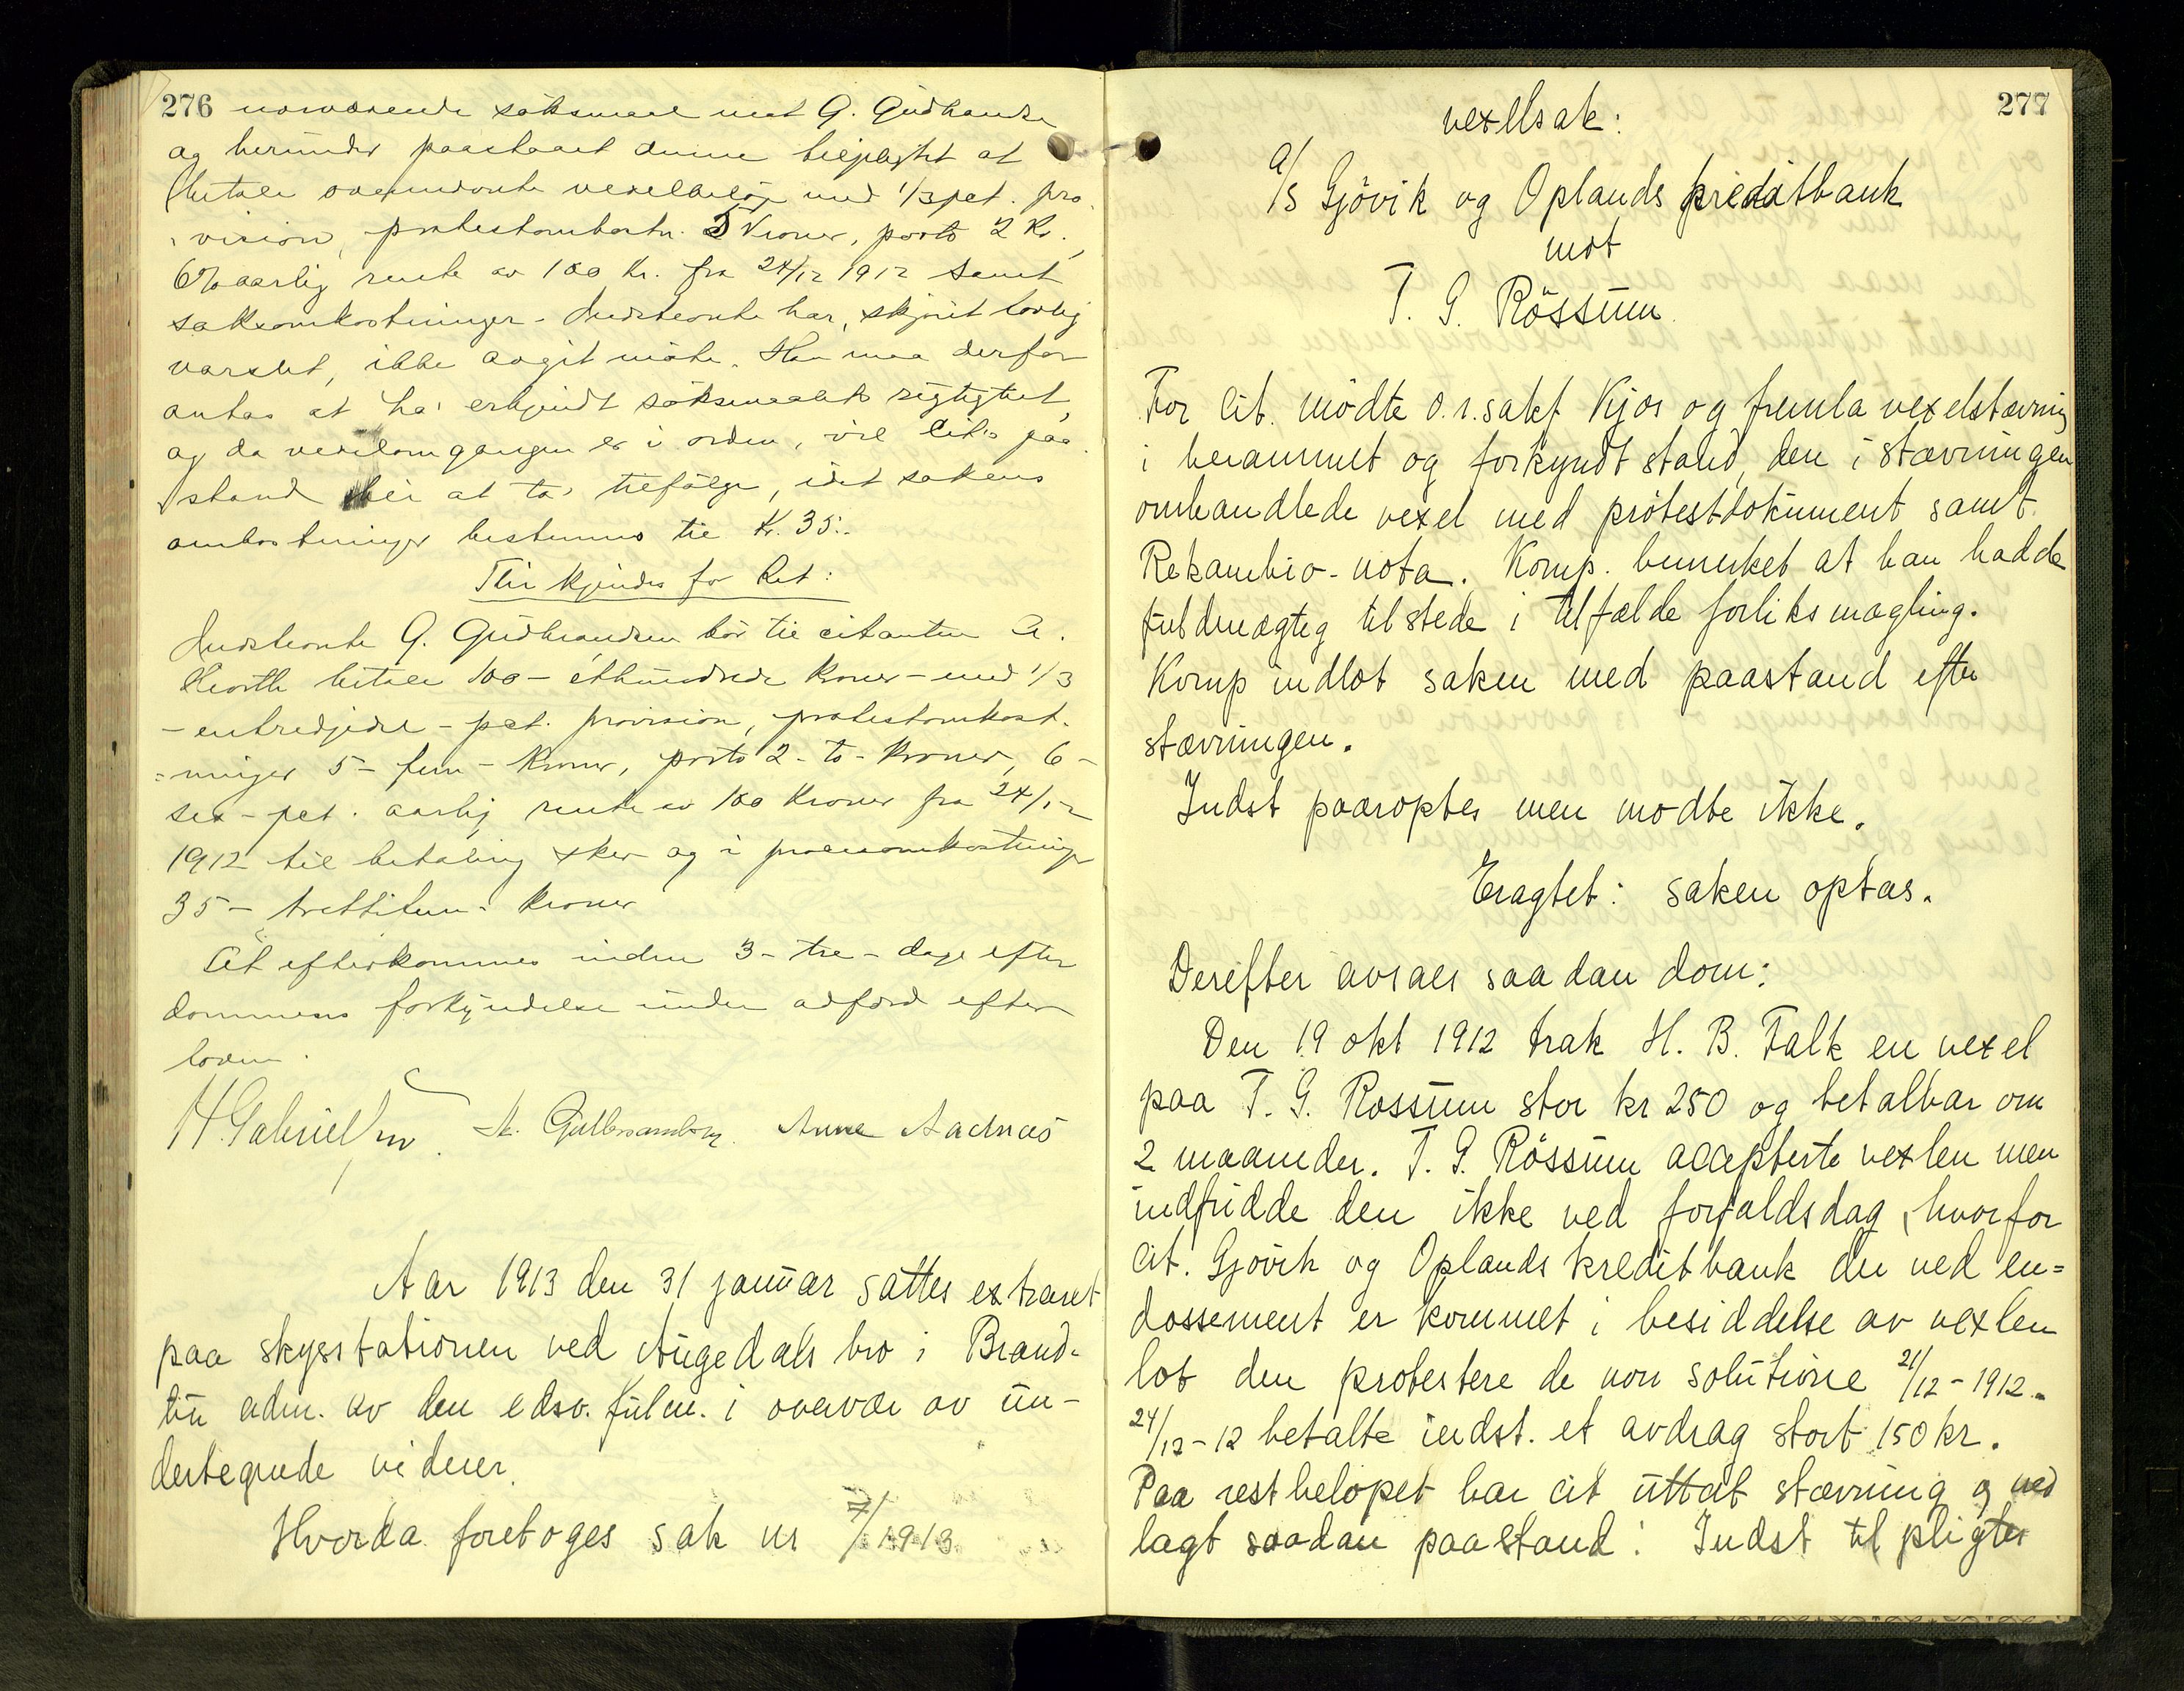 276
nærværende söksmaal mot G. Gudbrandsen
og herunder paastaaet denne tilpligtet at
betale ovennævnte vexelbelöp med 1/3 pct. pro-
vision, protestomkostn. 5 Kroner, porto 2 Kr.,
6% aarlig rente av 100 kr. fra 24/12 1912 samt
saksomkostninger. Indstevnte har, skjönt lovlig
varslet, ikke avgit möte. Han maa derfor
antas at ha erkjendt söksmaalets rigtighet,
og da vexelomgangen er i orden, vil cit.s paa-
stand bli at ta tilfölge, idet sakens
omkostninger bestemmes til Kr. 35.
Thi kjendes for Ret:
Indstevnte G. Gudbrandsen bör til citanten A.
Hiorth betale 100 - ethundrede kroner - med 1/3
- entredjedel - pct. provision, protestomkost-
ninger 5 - fem - kroner, porto 2 - to - kroner, 6 -
sex - pct. aarlig rente av 100 Kroner fra 24/12
1912 til betaling sker og i procesomkostninger
35 - trettifem - kroner
At efterkommes inden 3 - tre - dage efter
dommens forkyndelse under adfærd efter
loven.
H. Gabrielsen. Gulbrandsen. Anne Aadnæs
Aar 1913 den 31 januar sattes extraret
paa skysstationen ved Augedals bro i Brand-
bu adm. av den edsv. fulm. i overvær av un-
dertegnede vidner.
Hvorda foretoges sak nr 7/1913
277
vexelsak:
A/S Gjövik og Oplands kreditbank
mot
T. G. Rössum.
For Cit. mödte o.r.sakf Kjos og fremla vexelstævning
i berammet og forkyndt stand, den i stævningen
omhandlede vexel med protestdokument samt
Rekambio-nota. Komp. bemerket at han hadde
fuldmægtig tilstede i tilfælde forliksmægling.
Komp indlot saken med paastand efter
stævningen.
Indst paaroptes men modte ikke.
Eragtet: saken optas.
Derefter avsaes saadan dom:
Den 19 okt 1912 trak H. B. Falk en vexel
paa T. G. Rossum stor kr 250 og betalbar om
2 maaneder. T. G. Rössum accepterte vexlen men
indfridde den ikke ved forfaldsdag, hvorfor
Cit. Gjovik og Oplands kreditbank der ved en=
dossement er kommet i besiddelse av vexlen
lot den protestere de non solutione 21/12-1912.
24/12-12 betalte indst. et avdrag stort 150 kr.
Paa restbelöpet har cit uttat stævning og ned
lagt saadan paastand: Indst tilpligtes